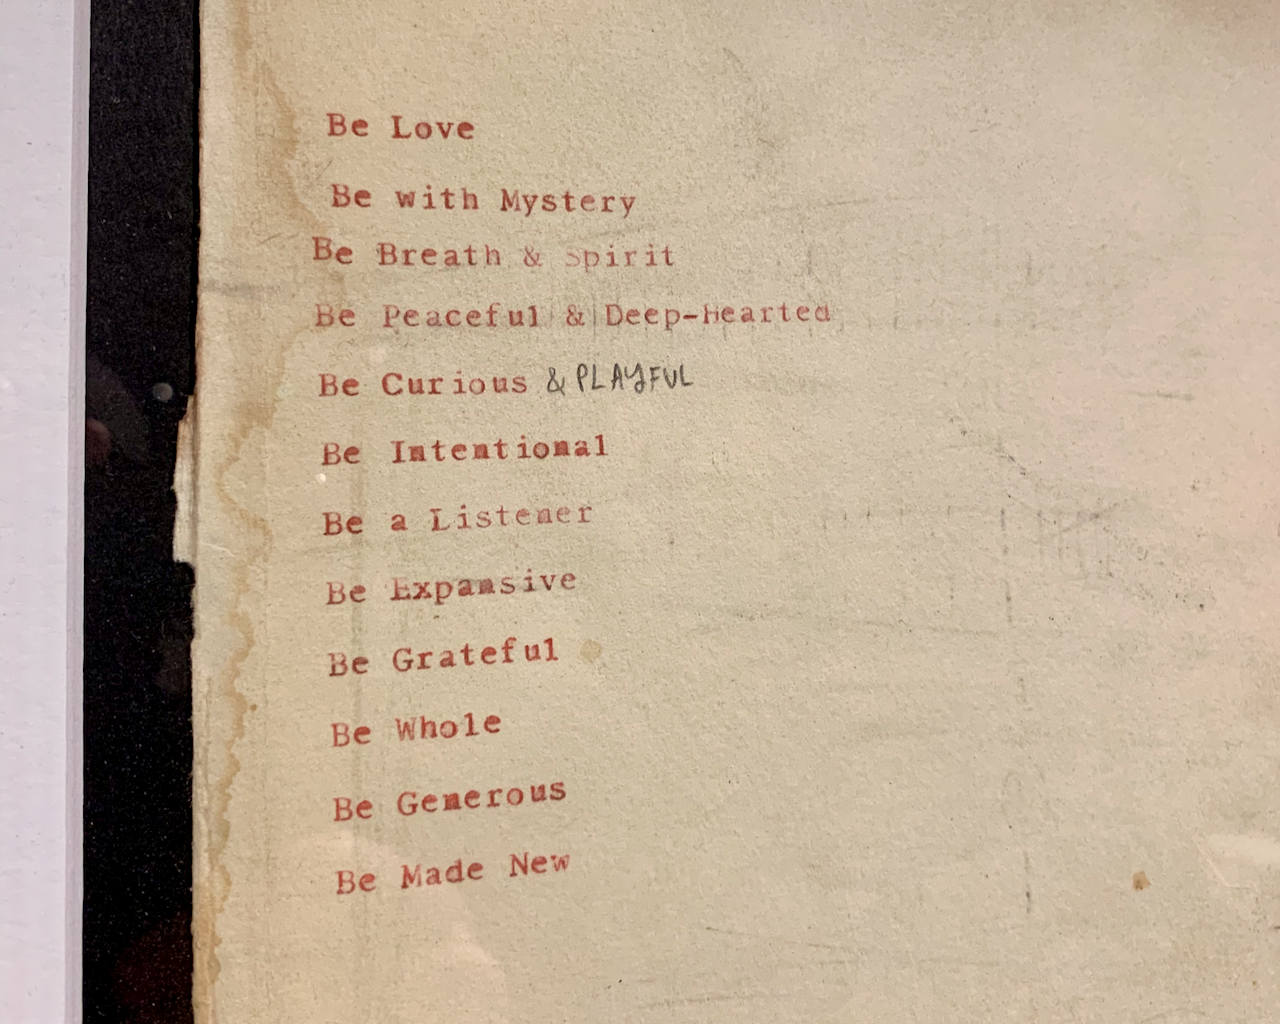 Be Love
Be with Mystery
Be Breath & Spirit
Be Peaceful & Deep-Hearted
Be Curious & PLAYFUL
Be Intentional
Be a Listener
Be Expansive
Be Grateful
Be Whole
Be Generous
Be Made New